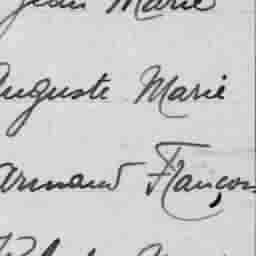 Jean Marie
Auguste Marie
Armand François